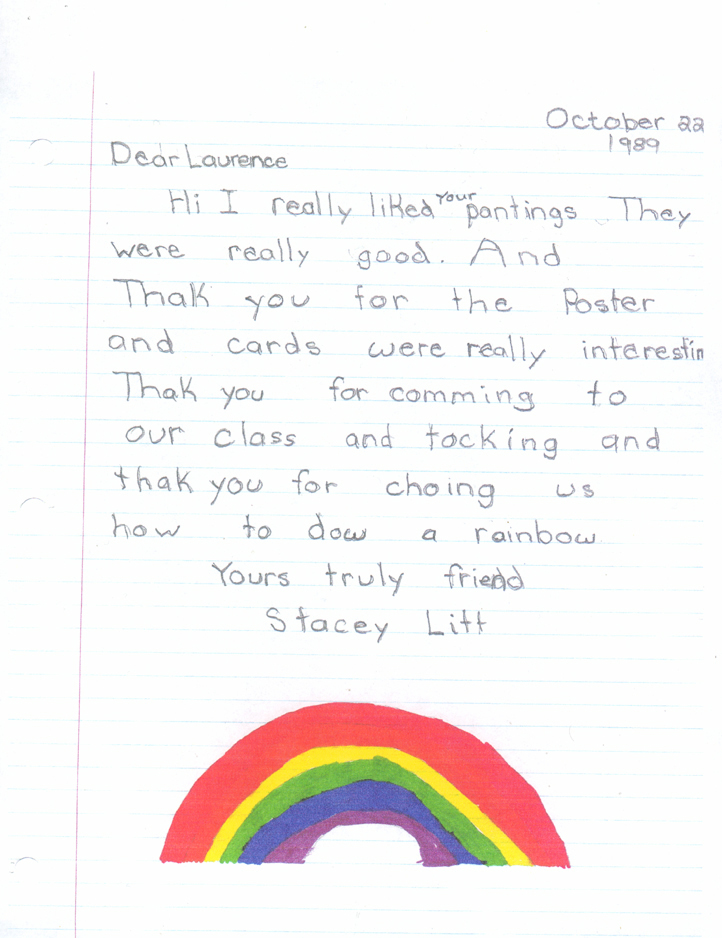 October 22
1989
Dear Laurence
Hi I really liked your pantings They
were really good. And
Thak you for the Poster
and cards were really interestin
Thak you for comming to
our class and tocking and
thak you for choing us
how to dow a rainbow
Yours truly friend
Stacey Litt